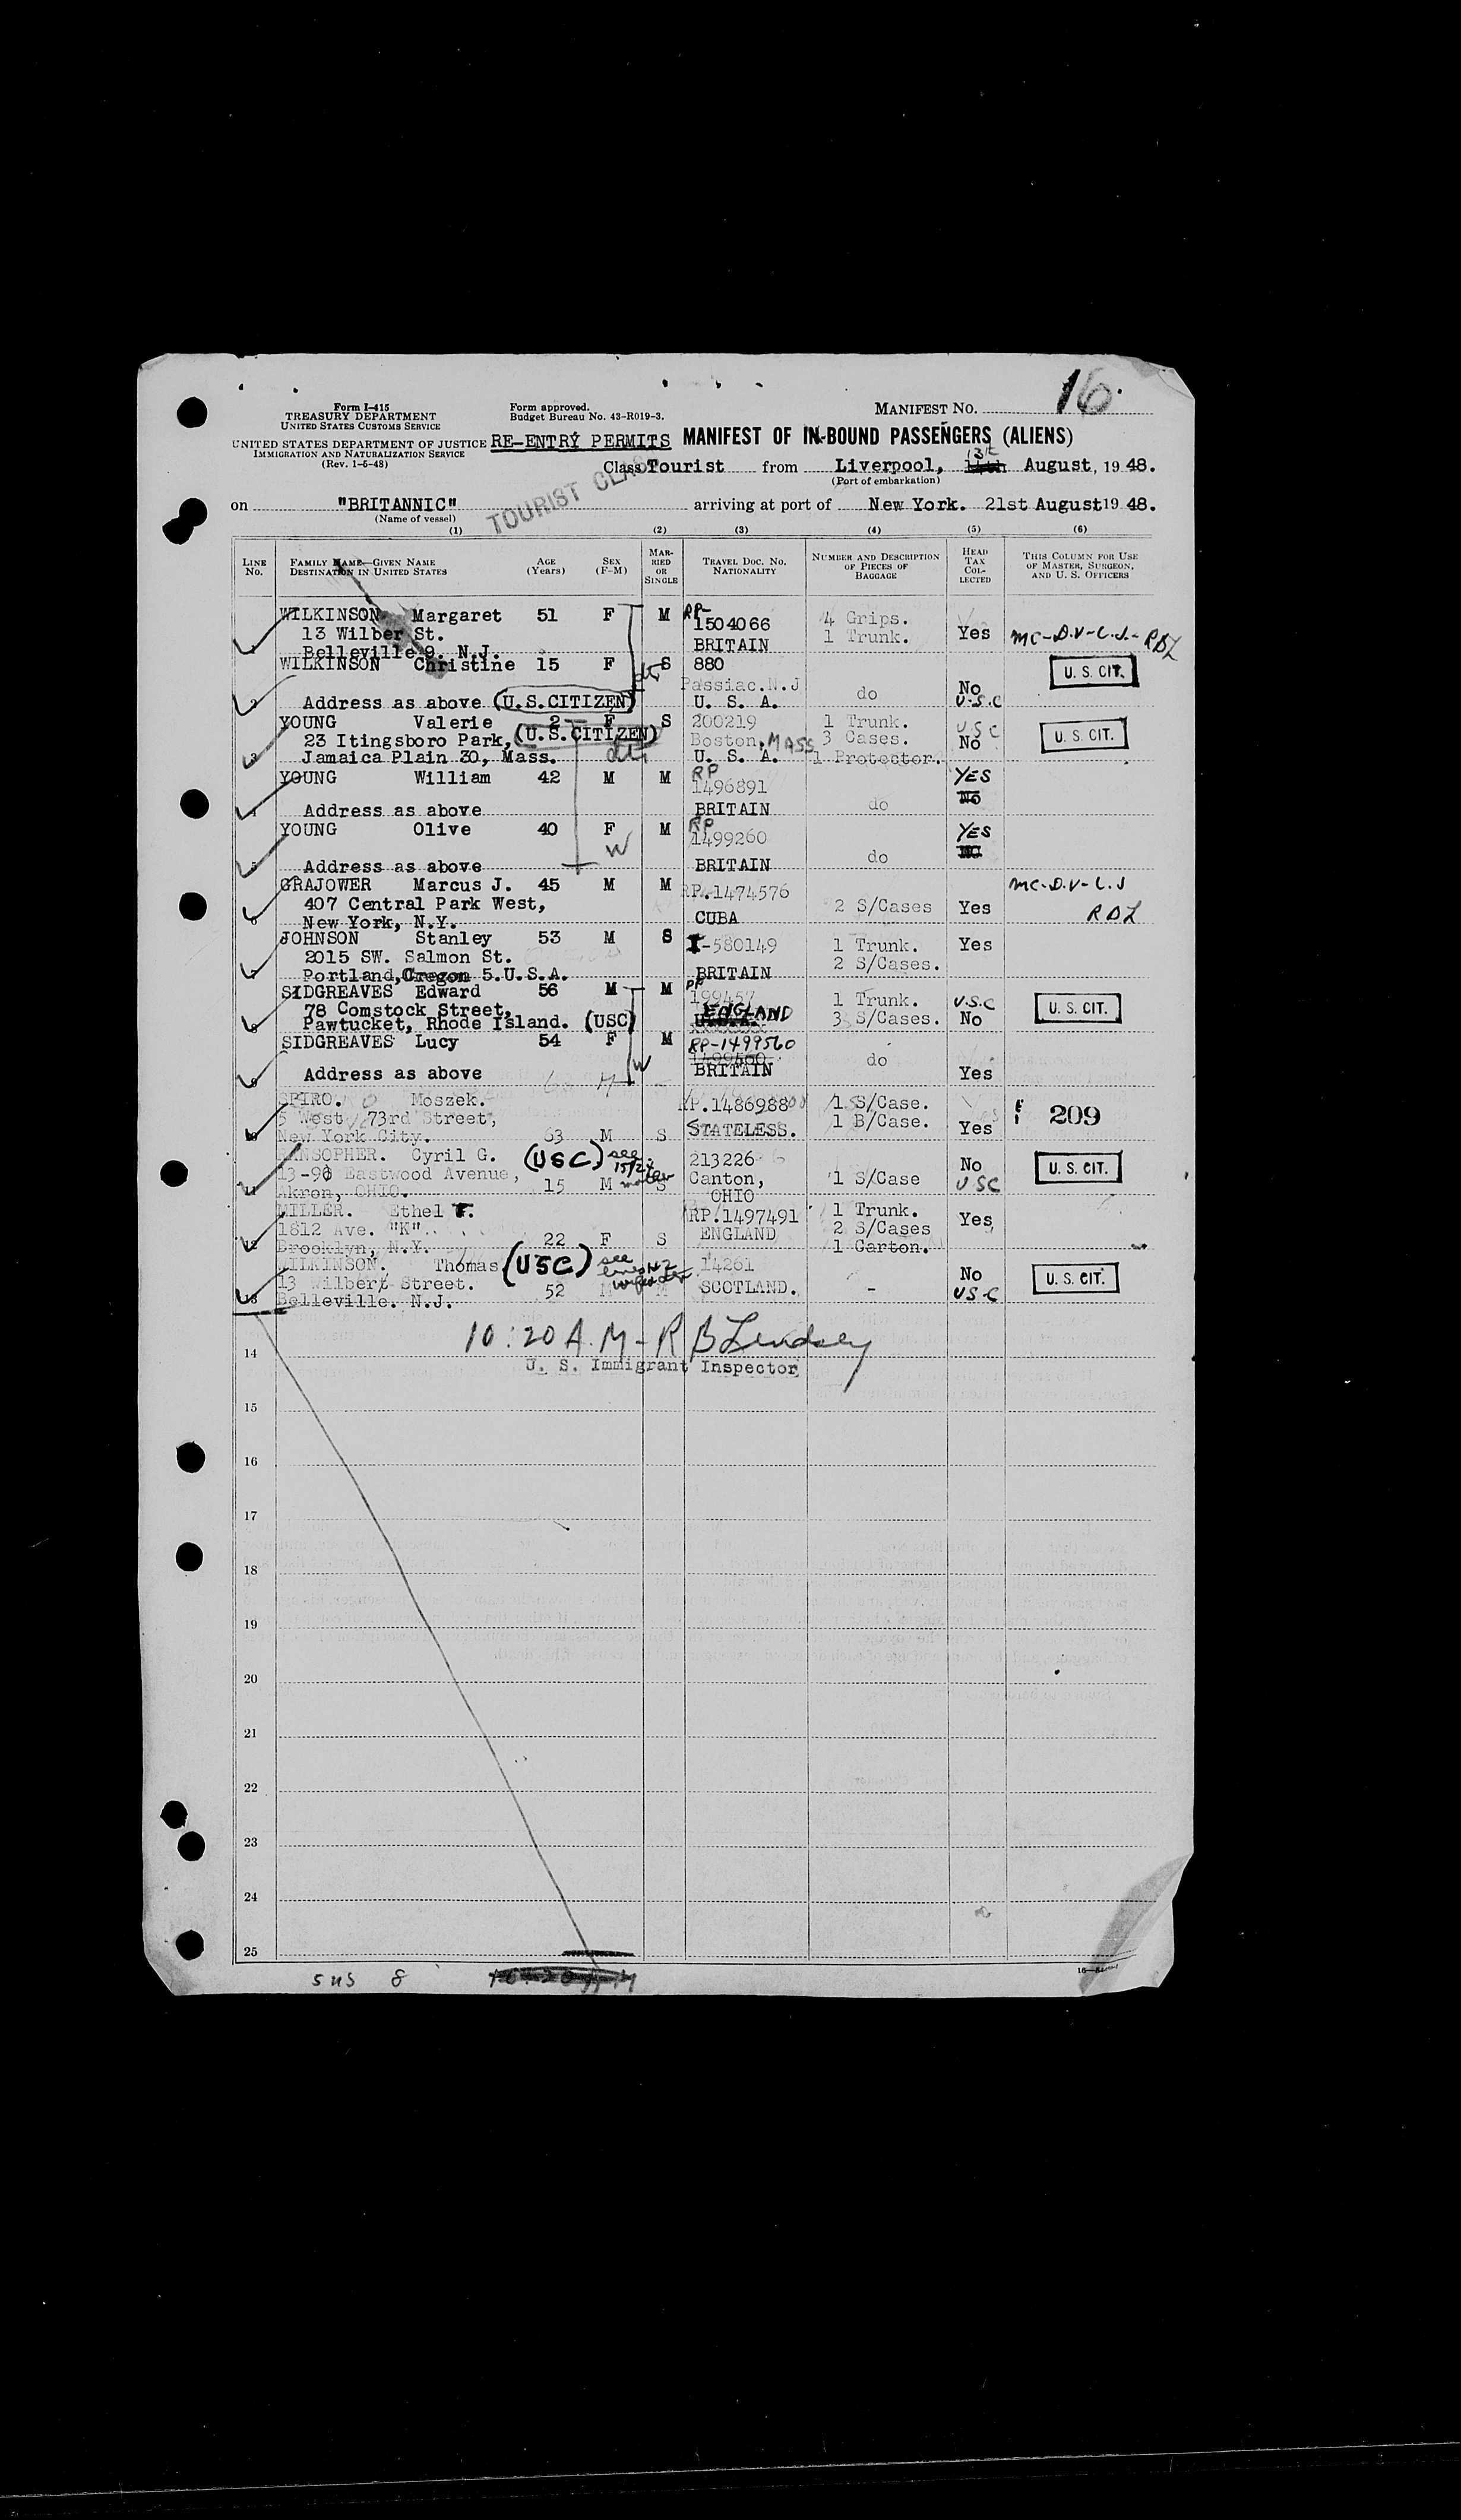 16
Form I-415
TREASURY DEPARTMENT
UNITED STATES CUSTOMS SERVICE
Form approved.
Budget Bureau No. 43-R019-3.
MANIFEST No.
UNITED STATES DEPARTMENT OF JUSTICE
IMMIGRATION AND NATURALIZATION SERVICE
(Rev. 1-5-48)
RE-ENTRY PERMITS MANIFEST OF IN-BOUND PASSENGERS (ALIENS)
Class Tourist from Liverpool, 13th August, 1948.
(Port of embarkation)
TOURIST CLASS
on "BRITANNIC" arriving at port of New York. 21st August 1948.
(Name of vessel)
(1) (2) (3) (4) (5) (6)
LINE No. FAMILY NAME—GIVEN NAME DESTINATION IN UNITED STATES AGE (Years) SEX (F-M) MARRIED OR SINGLE TRAVEL DOC. NO. NATIONALITY NUMBER AND DESCRIPTION OF PIECES OF BAGGAGE HEAD TAX COLLECTED THIS COLUMN FOR USE OF MASTER, SURGEON, AND U. S. OFFICERS
WILKINSON Margaret 51 F M RP- 1504066 4 Grips.
13 Wilber St. 1 Trunk. Yes MC-D.V-L.J.-RBL
Belleville 9. N.J. BRITAIN
WILKINSON Christine 15 F S 880 U. S. CIT.
Passiac.N.J do No
Address as above (U.S.CITIZEN) U. S. A. U.S.C
YOUNG Valerie 2 F S 200219 1 Trunk. USC
23 Itingsboro Park, (U.S.CITIZEN) Boston, MASS 3 Cases. No U. S. CIT.
Jamaica Plain 30, Mass. U. S. A. 1 Protector.
YOUNG William 42 M M RP 1496891 YES
Address as above BRITAIN do No
YOUNG Olive 40 F M RP 1499260 YES
W
Address as above BRITAIN do
GRAJOWER Marcus J. 45 M M RP.1474576 MC-D.V-L.J
407 Central Park West, 2 S/Cases Yes RBL
New York, N.Y. CUBA
JOHNSON Stanley 53 M S I-580149 1 Trunk. Yes
2015 SW. Salmon St. 2 S/Cases.
Portland, Oregon 5.U.S.A. BRITAIN
SIDGREAVES Edward 56 M M PP 199457 1 Trunk. U.S.C
78 Comstock Street, ENGLAND 3 S/Cases. No U. S. CIT.
Pawtucket, Rhode Island. (USC)
SIDGREAVES Lucy 54 F M RP-1499560
1499560 do
W
Address as above BRITAIN Yes
SPIRO. Moszek. RP.1486988 1 S/Case.
5 West 73rd Street, 1 B/Case. Yes 209
New York City. 63 M S STATELESS.
Cyril G. (USC) see 213226 No
13-96 Eastwood Avenue, 15/24 Canton, 1 S/Case USC U. S. CIT.
Akron, OHIO. 15 M mother S OHIO
MILLER. Ethel F. RP.1497491 1 Trunk. Yes
1812 Ave. "K" ENGLAND 2 S/Cases
Brooklyn, N.Y. 22 F S 1 Carton.
WILKINSON. Thomas (USC) see 14261 No
13 Wilbert Street. lines 1&2 SCOTLAND. - USC U. S. CIT.
Belleville. N.J. 52 M M
10:20 A.M - R B Lindsey
U. S. Immigrant Inspector
14
15
16
17
18
19
20
21
22
23
24
25
5 US 8